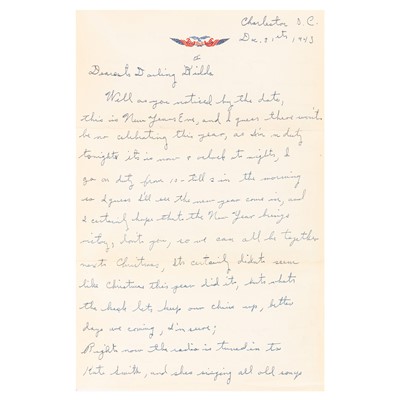 Charleston S.C.
Dec. 31st, 1943
Dearest Darling
Well as you noticed by the date,
this is New Years Eve, and I guess there won't
be no celebrating this year, as I'm on duty
tonight. its is now 8 o'clock at night, I
go on duty from 10 - till 2 in the morning
so I guess I'll see the new year come in, and
I certainly hope that the New Year brings
victory, don't you, so we can all be together
next Christmas, It certainly didn't seem
like Christmas this year did it, but what
the heck lets keep our chins up, better
days are coming, I'm sure;
Right now the radio is tuned in to
Kate Smith, and shes singing all old songs